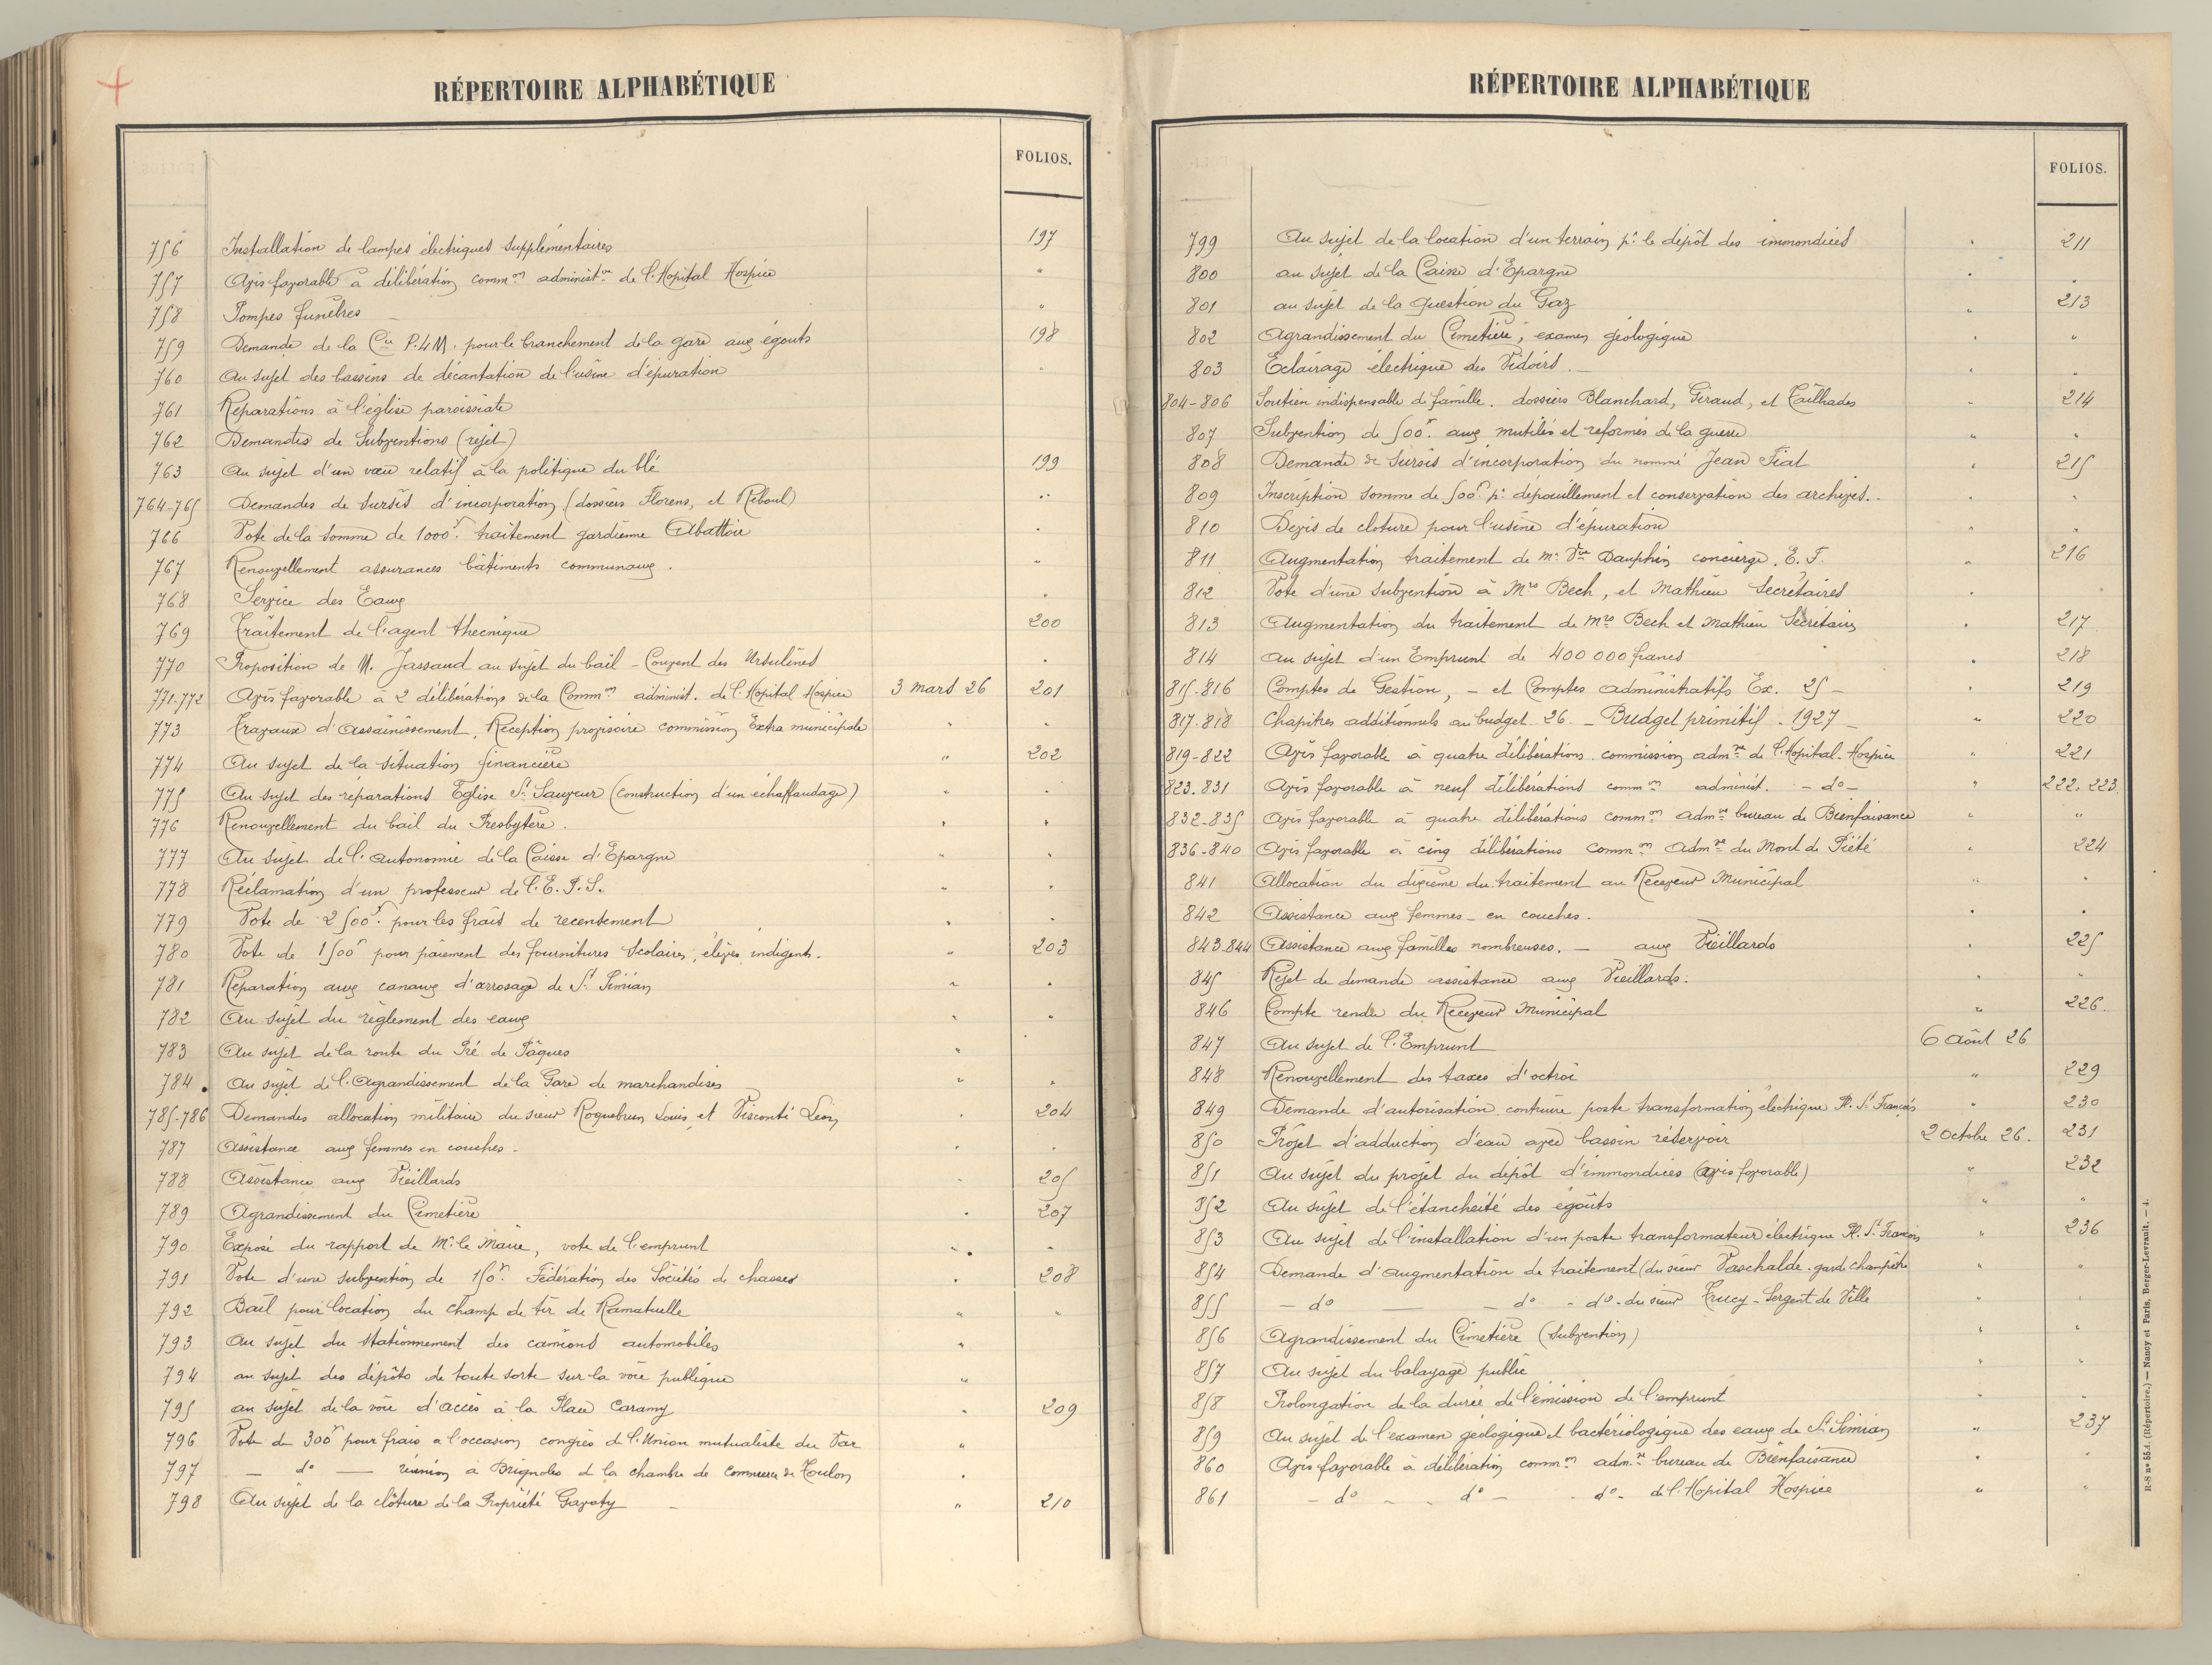 RÉPERTOIRE ALPHABÉTIQUE
FOLIOS.
756 Installation de lampes électriques supplémentaires 197
757 Avis favorable à délibération comm.on administ.ve de l'Hopital Hospice "
758 Pompes funèbres "
759 Demande de la Cie P.L.M. pour le branchement de la gare aux égouts 198
760 Au sujet des bassins de décantation de l'usine d'épuration "
761 Réparations à l'église paroissiale
762 Demandes de Subventions (rejet)
763 Au sujet d'un vœu relatif à la politique du blé 199
764-765 Demandes de sursis d'incorporation (dossiers Florens, et Reboul) "
766 Vote de la somme de 1000f. traitement gardienne Abattoir "
767 Renouvellement assurances bâtiments communaux. "
768 Service des Eaux "
769 Traitement de l'agent thecnique 200
770 Proposition de M. Jassaud au sujet du bail - Couvent des Ursulines "
771-772 Avis favorable à 2 délibérations de la Comm.on administ. de l'Hopital Hospice 3 mars 26 201
773 Travaux d'assainissement, Réception provisoire commission Extra municipale " "
774 Au sujet de la situation financière " 202
775 Au sujet des réparations Eglise St Sauveur (construction d'un échaffaudage) " "
776 Renouvellement du bail du Presbytère. " "
777 Au sujet de l'autonomie de la Caisse d'Epargne " "
778 Réclamation d'un professeur de l'E.P.S. " "
779 Vote de 2500f. pour les frais de recensement " "
780 Vote de 1500f pour paiement des fournitures scolaires, élèves indigents. " 203
781 Réparation aux canaux d'arrosage de St Simian " "
782 Au sujet du règlement des eaux " "
783 Au sujet de la route du Pré de Pâques "
784 Au sujet de l'Agrandissement de la Gare de marchandises " "
785-786 Demandes allocation militaire du sieur Roquebrun Louis, et Visconti Léon " 204
787 Assistance aux femmes en couches. " "
788 Assistance aux Vieillards " 205
789 Agrandissement du Cimetière " 207
790 Exposé du rapport de Mr le Maire, vote de l'emprunt " "
791 Vote d'une subvention de 150f. Fédération des Sociétés de chasses " 208
792 Bail pour location du champ de tir de Ramatuelle " "
793 Au sujet du stationnement des camions automobiles "
794 au sujet des dépôts de toute sorte sur la voie publique "
795 au sujet de la voie d'accès à la Place Caramy " 209
796 Vote de 300f pour frais a l'occasion congrès de l'Union mutualiste du Var "
797 — do — réunion à Brignoles de la chambre de commerce de Toulon "
798 Au sujet de la clôture de la Propriété Gavoty — " 210
RÉPERTOIRE ALPHABÉTIQUE
FOLIOS.
799 Au sujet de la location d'un terrain pr le dépôt des immondices " 211
800 au sujet de la Caisse d'Epargne " "
801 au sujet de la Question du Gaz " 213
802 Agrandissement du Cimetière, examen géologique " "
803 Eclairage électrique des Vidoirs. — " "
804-806 Soutien indispensable de famille. dossiers Blanchard, Giraud, et Tailhades " 214
807 Subvention de 500f. aux mutilés et réformés de la guerre " "
808 Demande de sursis d'incorporation du nommé Jean Fiat " 215
809 Inscription somme de 500f. pr dépouillement et conservation des archives. " "
810 Devis de cloture pour l'usine d'épuration " "
811 Augmentation traitement de Me Vve Dauphin concierge. E.F. " 216
812 Vote d'une subvention à Mrs Bech, et Mathieu Secrétaires " "
813 Augmentation du traitement de Mrs Bech et Mathieu Secrétaires " 217
814 Au sujet d'un Emprunt de 400 000 francs " 218
815-816 Comptes de Gestion, — et Comptes administratifs Ex. 25 — " 219
817-818 Chapitres additionnels au budget 26. — Budget primitif. 1927 — " 220
819-822 Avis favorable à quatre délibérations commission adm.ve de l'Hopital-Hospice " 221
823.831 Avis favorable à neuf délibérations comm.on administ. — do — " 222, 223.
832-835 Avis favorable à quatre délibérations comm.on adm.ve bureau de Bienfaisance " "
836-840 Avis favorable à cinq délibérations comm.on adm.ve du Mont de Piété " 224
841 Allocation du dixième du traitement au Receveur Municipal " "
842 Assistance aux femmes - en couches. " "
843.844 Assistance aux familles nombreuses. — aux Vieillards " 225
845 Rejet de demande assistance aux Vieillards. " "
846 Compte rendu du Receveur Municipal " 226.
847 Au sujet de l'Emprunt 6 Août 26
848 Renouvellement des taxes d'octroi " 229
849 Demande d'autorisation contruire poste transformation électrique Pl. St François " 230
850 Projet d'adduction d'eau avec bassin réservoir 2 Octobre 26. 231
851 Au sujet du projet du dépôt d'immondices (avis favorable) " 232
852 Au sujet de l'étancheité des égoûts " "
853 Au sujet de l'installation d'un poste transformateur électrique Pl. St François " 236
854 Demande d'augmentation de traitement (du sieur Paschalde. garde champêtre " "
855 — do — — do - do - du sieur Trucy - Sergent de Ville " "
856 Agrandissement du Cimetière (subvention) " "
857 Au sujet du balayage public " "
858 Prolongation de la durée de l'émission de l'emprunt " "
859 Au sujet de l'examen géologique et bactériologique des eaux de St Simian " 237
860 Avis favorable à délibération comm.on adm.ve bureau de Bienfaisance " "
861 — do — do — do - de l'Hopital Hospice " "
R-S no 55A. (Répertoire.) — Nancy et Paris, Berger-Levrault. — 4.